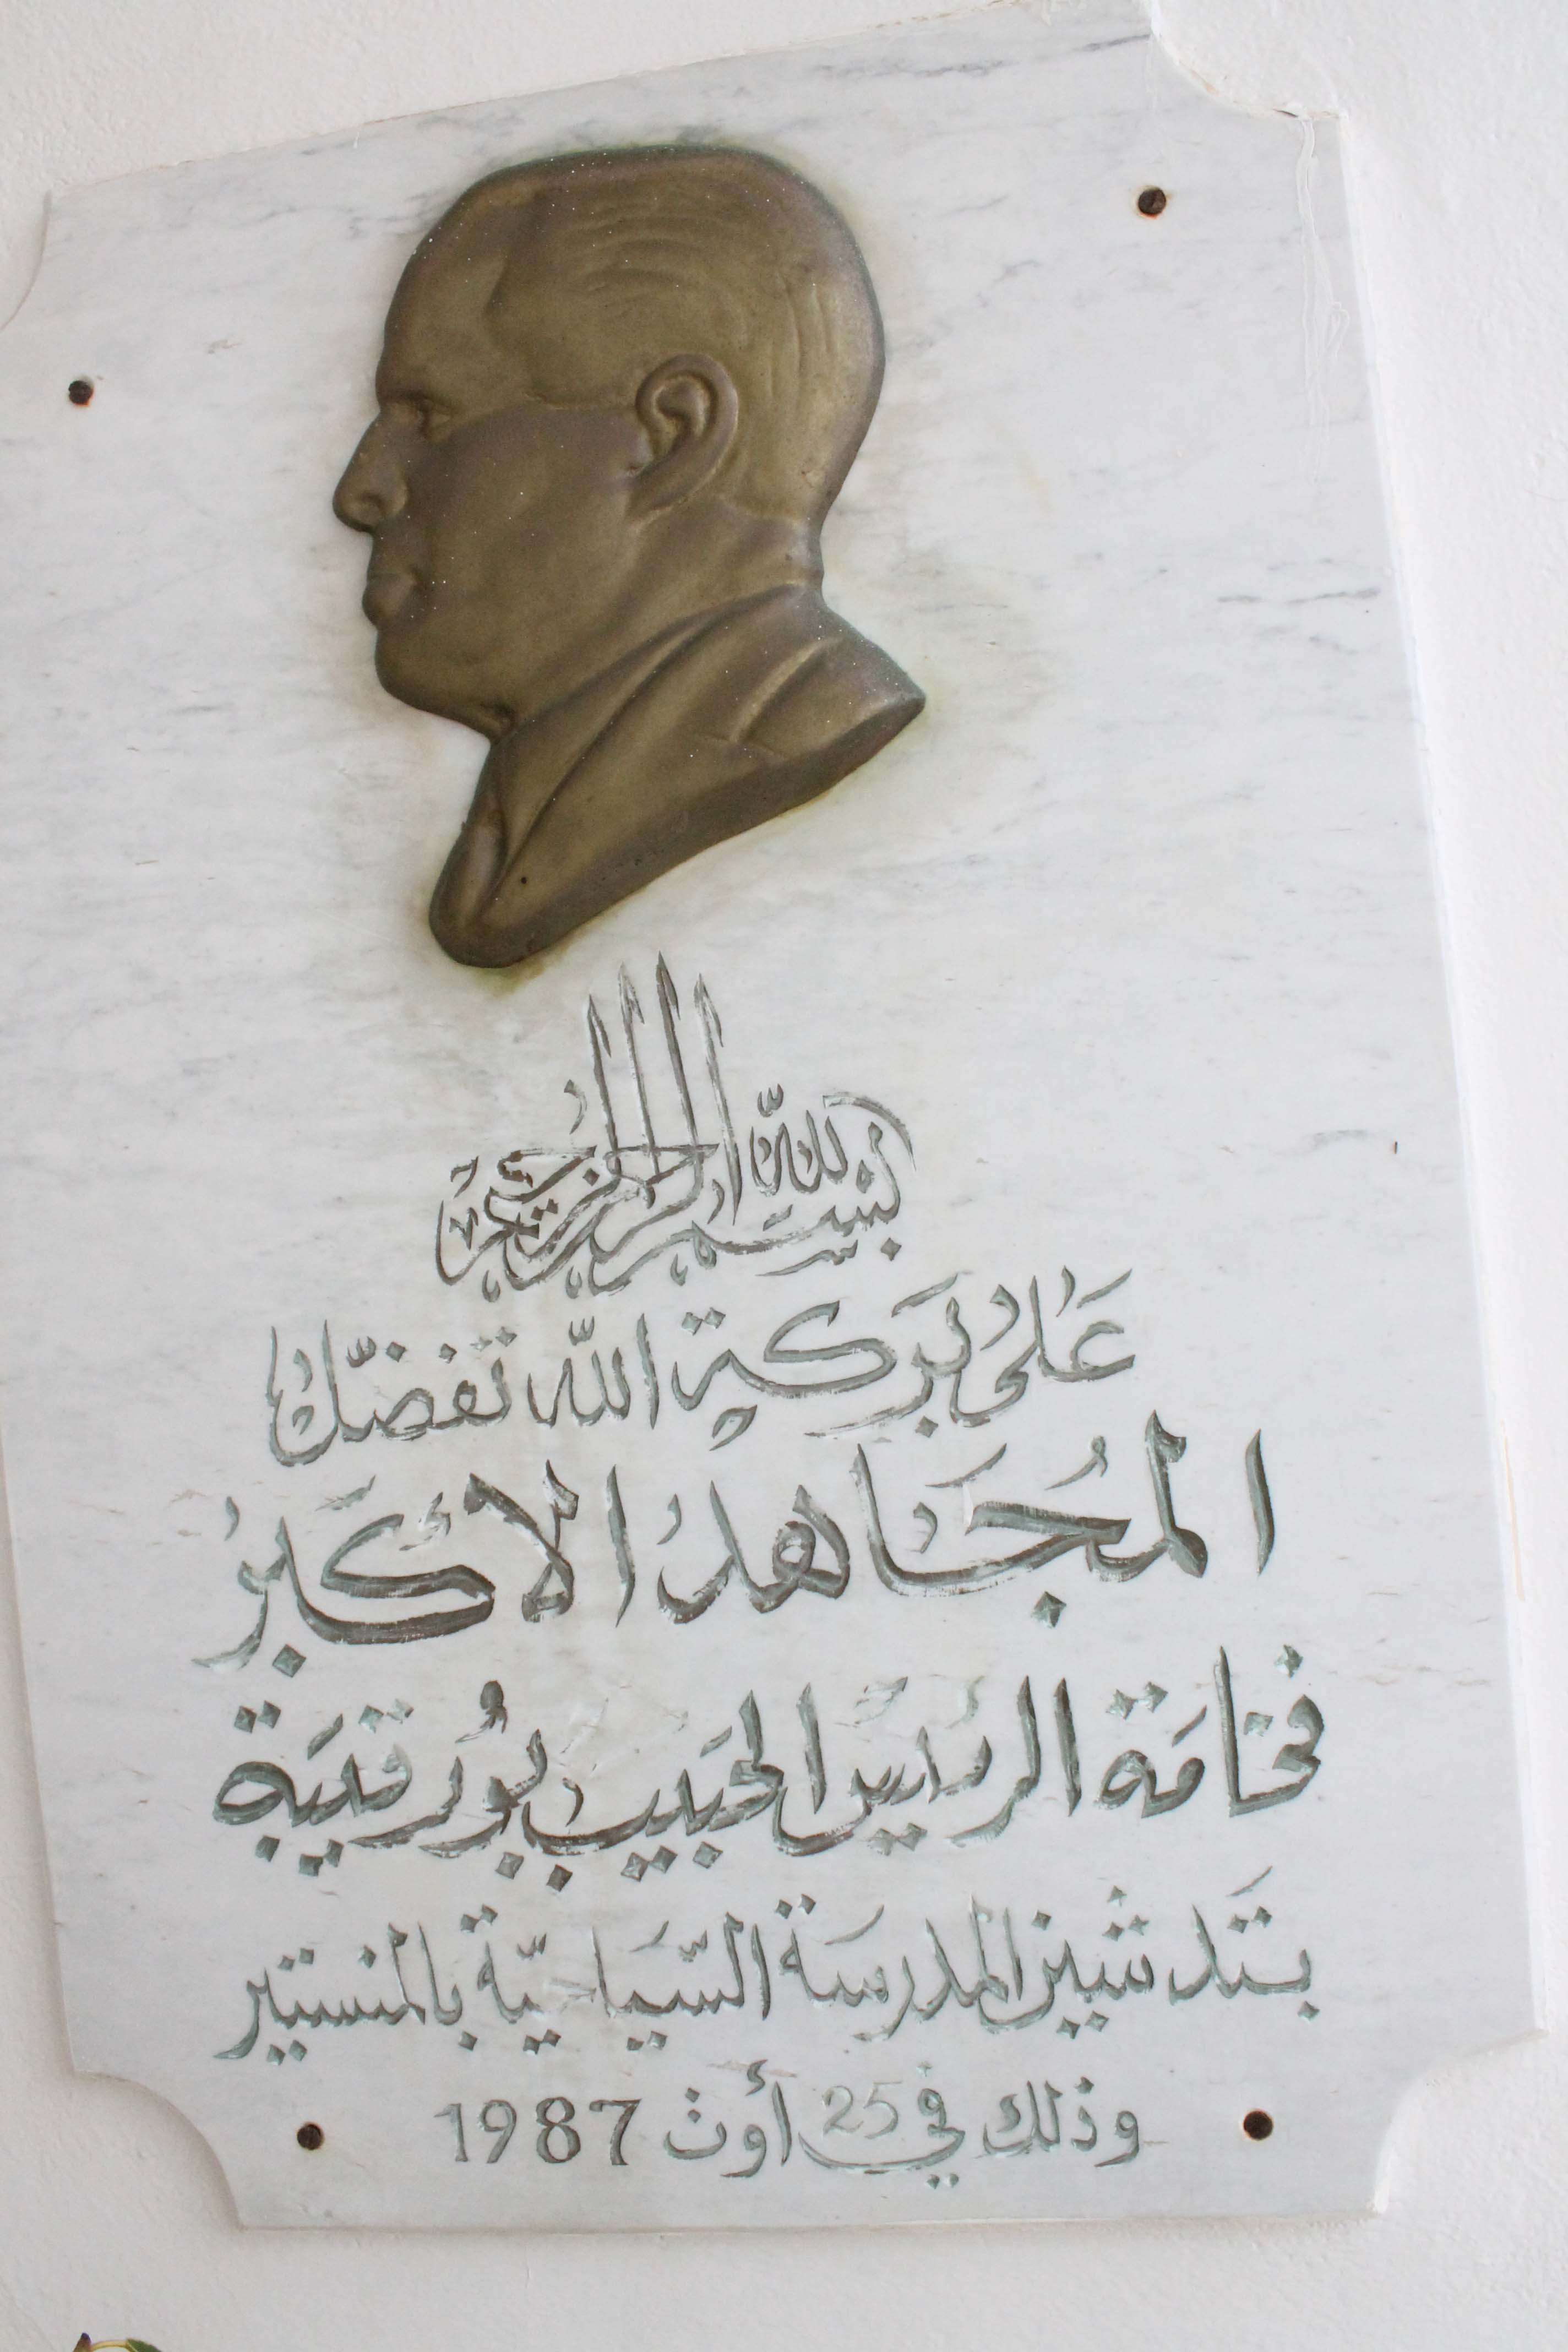 بسم الله الرحمن الرحيم
عَلى بَركةِ الله تفضّل
المُجَاهدُ الأكبَرُ
فخامَة الرئيس الحَبيب بُورقيبَة
بتَدشين المدرسَة السّيَاحيّة بالمنستير
وذلك في 25 أوت 1987